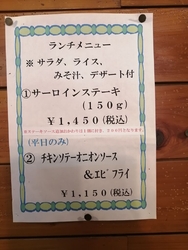 ランチメニュー
※サラダ、ライス、
みそ汁、デザート付
①サーロインステーキ
(150g)
¥1,450(税込)
(平日のみ)
② チキンソテーオニオンソース
&エビフライ
¥1,150(税込)